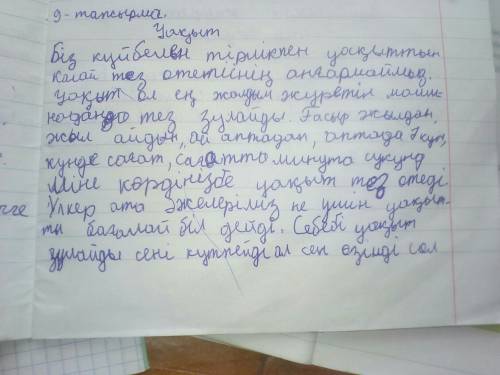 9-тапсырма.
Уақыт
Біз күйбелең тірлікпен уақыттын
қалай тез өтетінің аңғармаймыз.
Уақыт ол ең жылдам жүретін маши
надан да тез зулайды. Ғасыр жылдан,
жыл айдан, ай аптадан, аптада 7 күн,
күнде сағат, сағатта минута сукунд
Міне көрдіңезбе уақыт тез өтеді
Үлкер ата әжелеріміз не үшін уақыт-
ты бағалай біл дейді. Себебі уақыт
зулайды сені күтпейді ал сен өзіңді сол